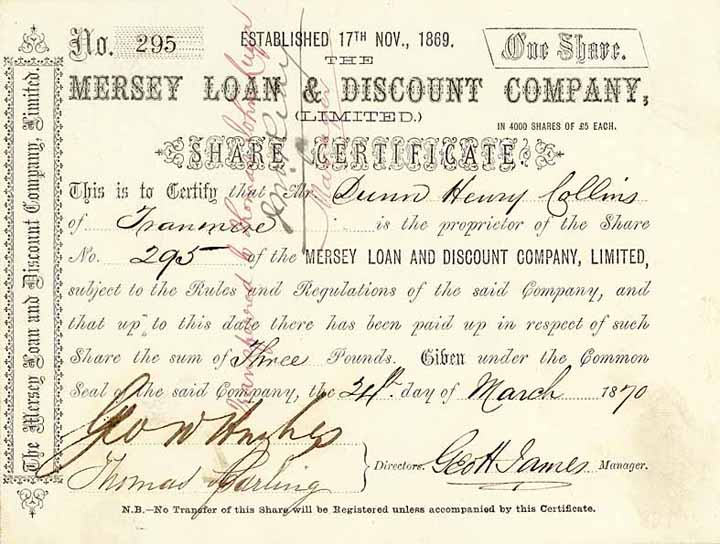 The Mersey Loan and Discount Company, Limited.
No. 295
ESTABLISHED 17TH NOV., 1869.
One Share.
THE
MERSEY LOAN & DISCOUNT COMPANY,
(LIMITED.)
IN 4000 SHARES OF £5 EACH.
SHARE CERTIFICATE.
This is to Certify that Mr Dunn Henry Collins
of Tranmere is the proprietor of the Share
No. 295 of the MERSEY LOAN AND DISCOUNT COMPANY, LIMITED,
subject to the Rules and Regulations of the said Company, and
that up to this date there has been paid up in respect of such
Share the sum of Three Pounds. Given under the Common
Seal of the said Company, the 24th day of March 1870
Geo W Hughes
Thomas Carling
Directors.
Geo H James
Manager.
N.B.—No Transfer of this Share will be Registered unless accompanied by this Certificate.
Transferred to Thomas John
Manager